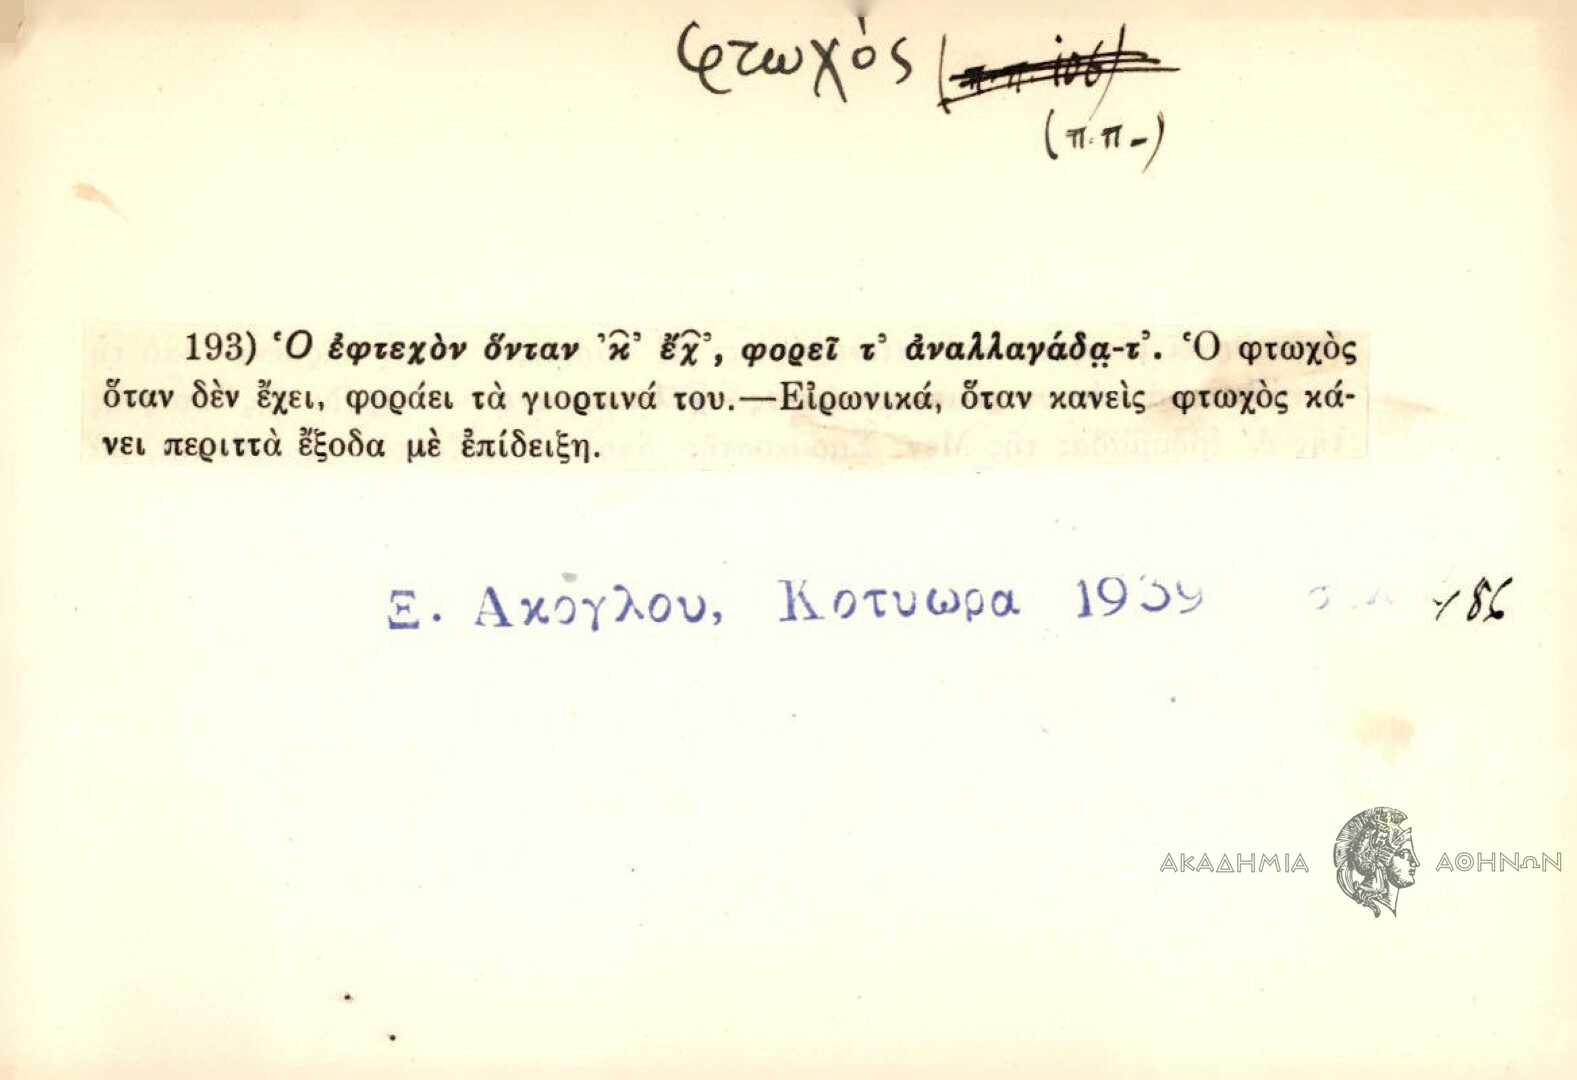 φτωχός
(π.π.-)
193) Ὁ ἐφτεχὸν ὅνταν 'κ̑' ἔχ̑', φορεῖ τ' ἀναλλαγάδα̤-τ'. Ὁ φτωχὸς
ὅταν δὲν ἔχει, φοράει τὰ γιορτινά του.—Εἰρωνικά, ὅταν κανεὶς φτωχὸς κά-
νει περιττὰ ἔξοδα μὲ ἐπίδειξη.
Ξ. Ακογλου, Κοτυωρα 1939 486
ΑΚΑΔΗΜΙΑ ΑΘΗΝΩΝ